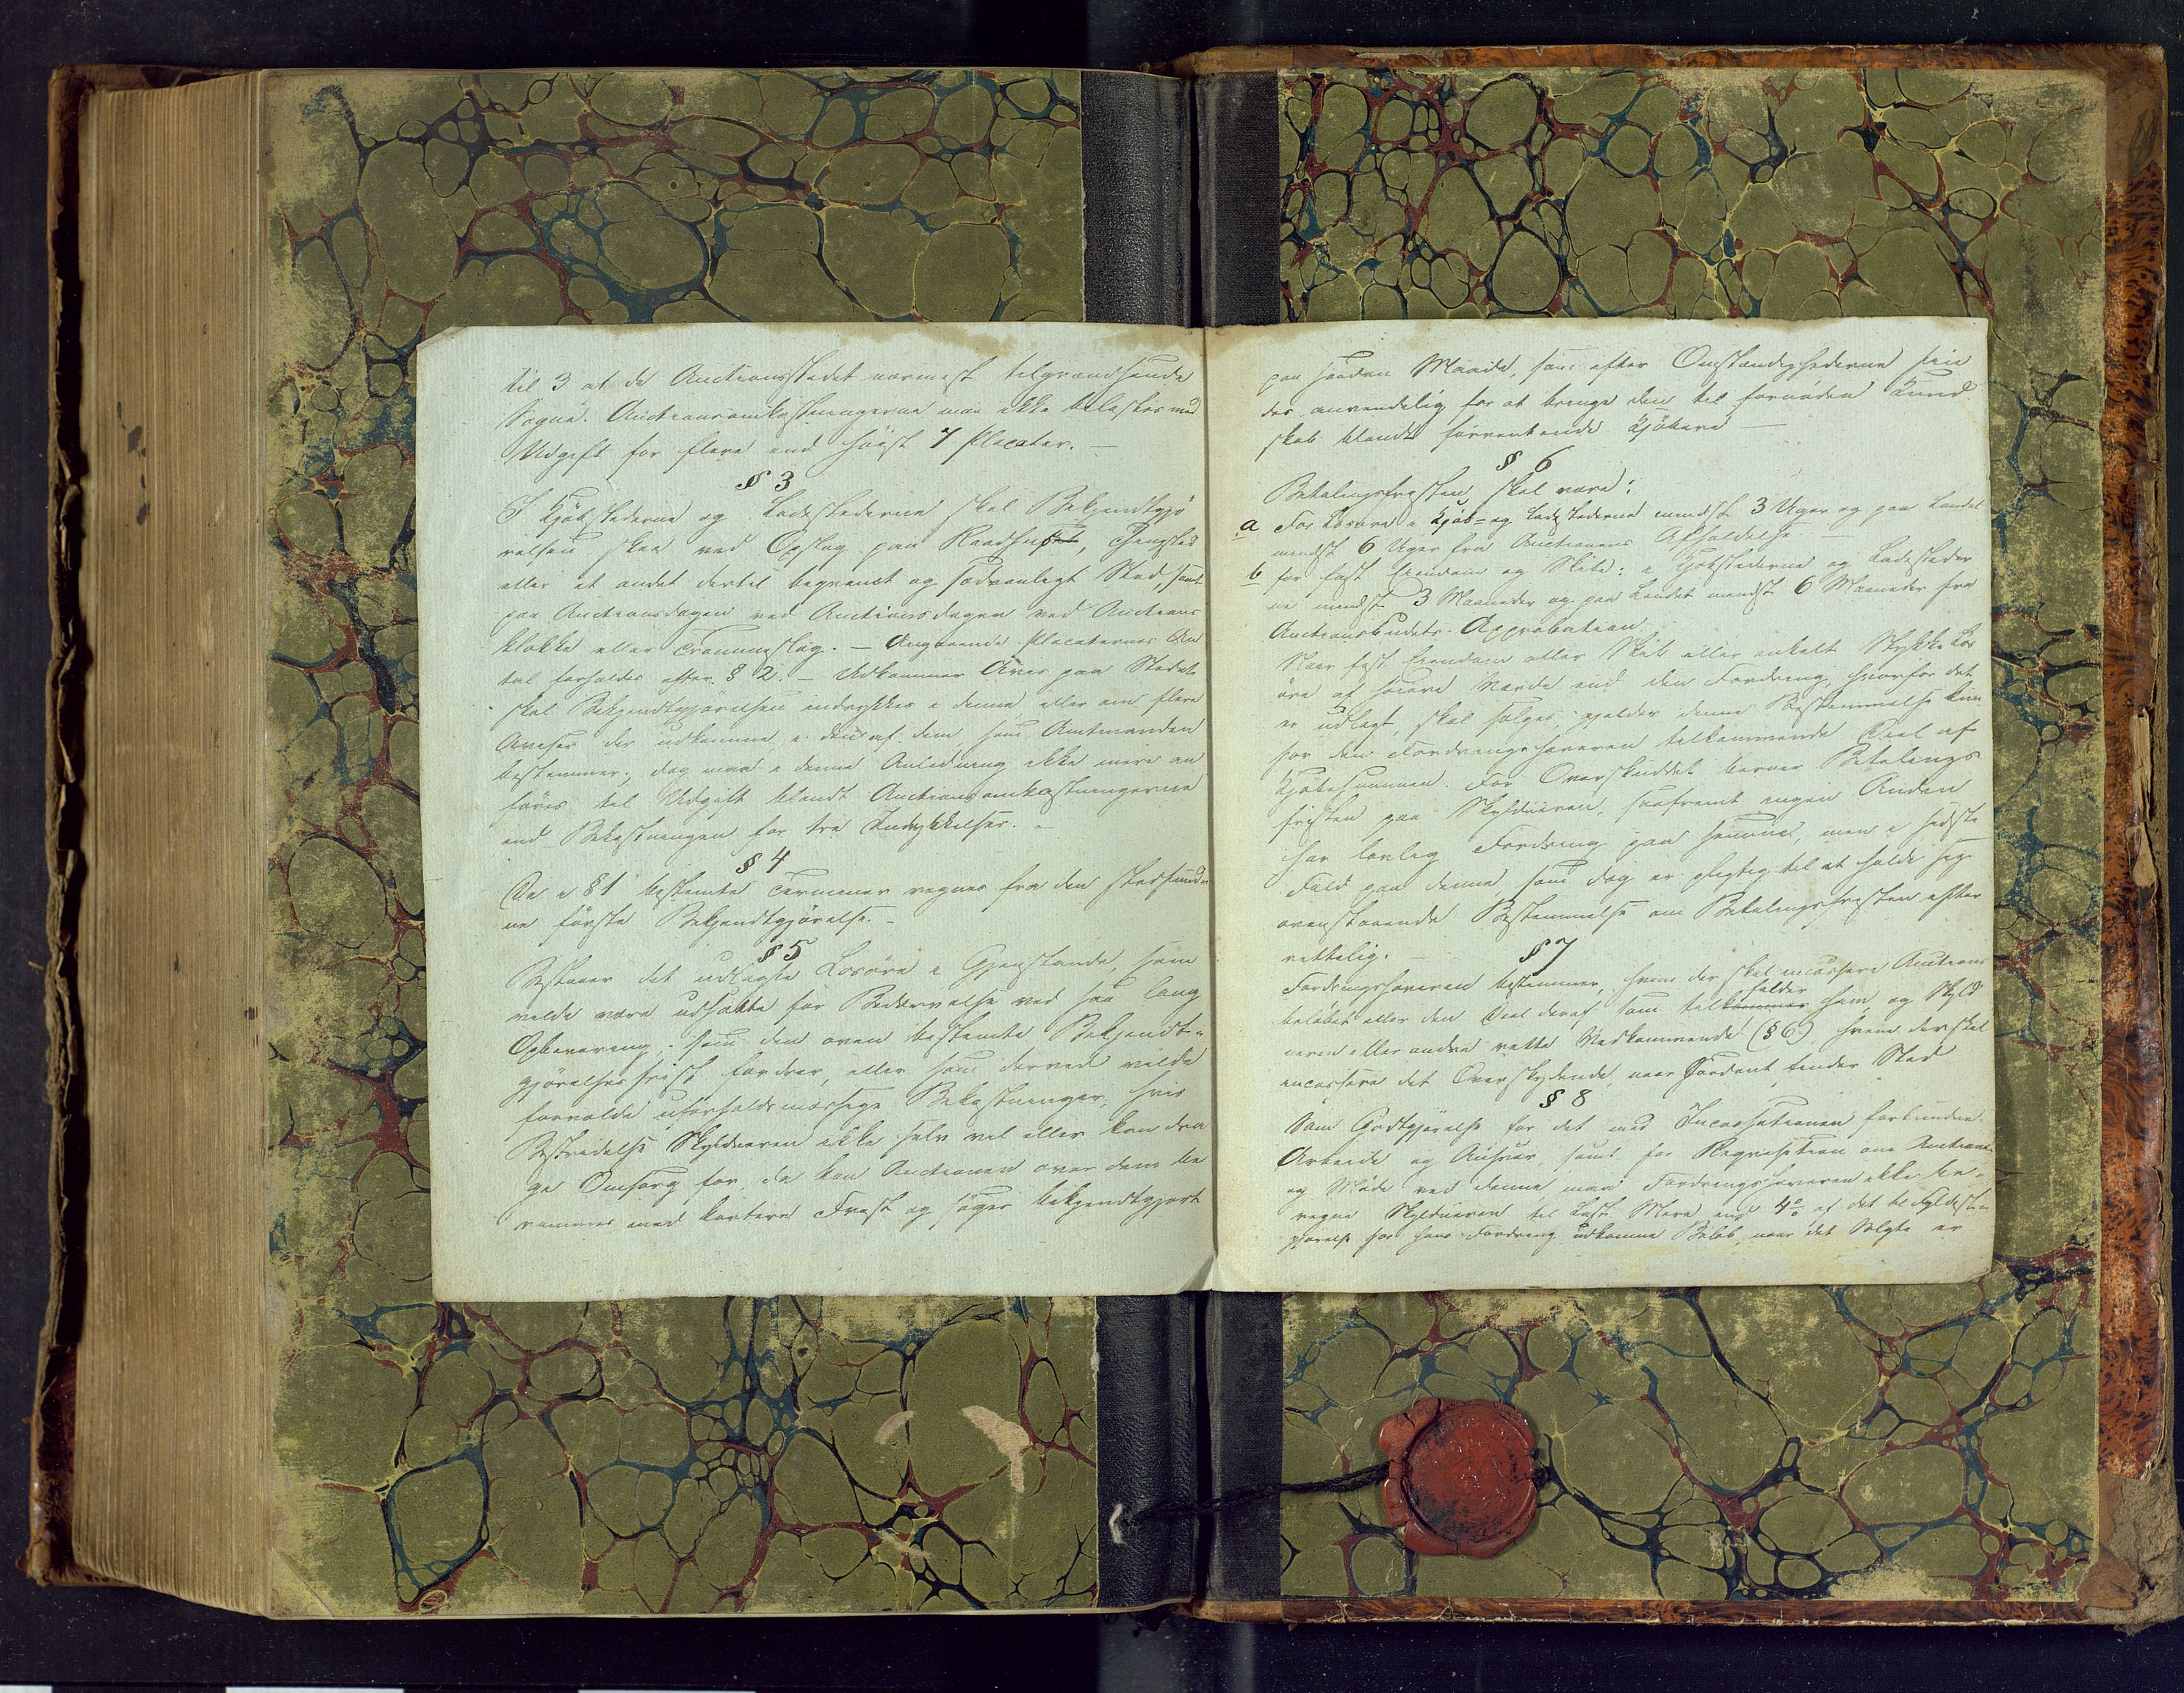 til 3 af de Auctionsstedet nærmest tilgrændsende
Sogne. Auctionsomkostningerne maa ikke belastes med
Udgift for flere end høist 7 Placater. —
§ 3
I Kjøbstæderne og Ladestederne skal Bekjendtgjø
relsen skee ved Opslag paa Raadhuset, Thingsted
eller et andet dertil beqvemt og sædvanligt Sted, samt
paa Auctionsdagen ved Auctionsdagen ved Auctions
klokke eller Trommeslag. — Angaaende Placaternes An
tal forholdes efter § 2. — Udkommer Avis paa Stedet
skal Bekjendtgjørelsen indrykkes i denne eller om flere
Aviser der udkomme, i den af dem, som Amtmanden
bestemmer, dog maa i denne Anledning ikke mere an
føres til Udgift blandt Auctionsomkostningerne
end Bekostningen for tre Indrykkelser. —
§ 4
De i § 1 bestemte Terminer regnes fra den stedfund-
ne første Bekjendtgjørelse. —
§ 5
Bestaaer det udlagte Løsøre i Gjenstande, som
vilde være udsatte for Bedærvelse ved saa lang
Opbevaring, som den oven bestemte Bekjendt-
gjørelsesfrist fordrer, eller som derved vilde
forvolde uforholdsmæssige Bekostninger, hvis
Bestridelse Skyldneren ikke selv vil eller kan dra
ge Omsorg for, da kan Auctionen over dem be
rammes med kortere Frist og søges bekjendtgjort
paa saadan Maade, som efter Omstændighederne fin
des anvendelig for at bringe den til fornøden Kund
skab blandt forventende Kjøbere —
§ 6
Betalingsfristen skal være:
a For Løsøre i Kjøb- og Ladestederne mindst 3 Uger og paa Landet
mindst 6 Uger fra Auctionens Afholdelse —
b for fast Eiendom og Skibe: i Kjøbstæderne og Ladesteder
ne mindst 3 Maaneder og paa Landet mindst 6 Maaneder fra
Auctionsbudets Approbation.
Naar fast Eiendom eller Skib eller enkelt Stykke Løs
øre af høiere Værdi end den Fordring, hvorfor det
er udlagt, skal sælges, gjelder denne Bestemmelse kun
for den Fordringshaveren tilkommende Deel af
Kjøbesummen. For Overskuddet beroer Betalings
fristen paa Skyldneren, saafremt ingen Anden
har lovlig Fordring paa samme, men i sidste
Fald paa denne, som dog er pligtig til at holde sig
ovenstaaende Bestemmelse om Betalingsfristen efter
rettelig. —
§ 7
Fordringshaveren bestemmer, hvem der skal incassere Auctions
beløbet eller den Deel deraf som tilkommer falder ham, og Skyld
neren eller andre rette Vedkommende (§ 6), hvem der skal
incassere det Overskydende, naar Saadant finder Sted
§ 8
Som Godtgjørelse for det med Incassationen forbundne
Arbeide og Ansvar, samt for Reqvisition om Auctionen
og Møde ved denne, maa Fordringshaveren ikke be-
regne Skyldneren til Last Mere end 4% af det til Fyldest-
gjørelse for hans Fordring udkomne Beløb, naar det Solgte er